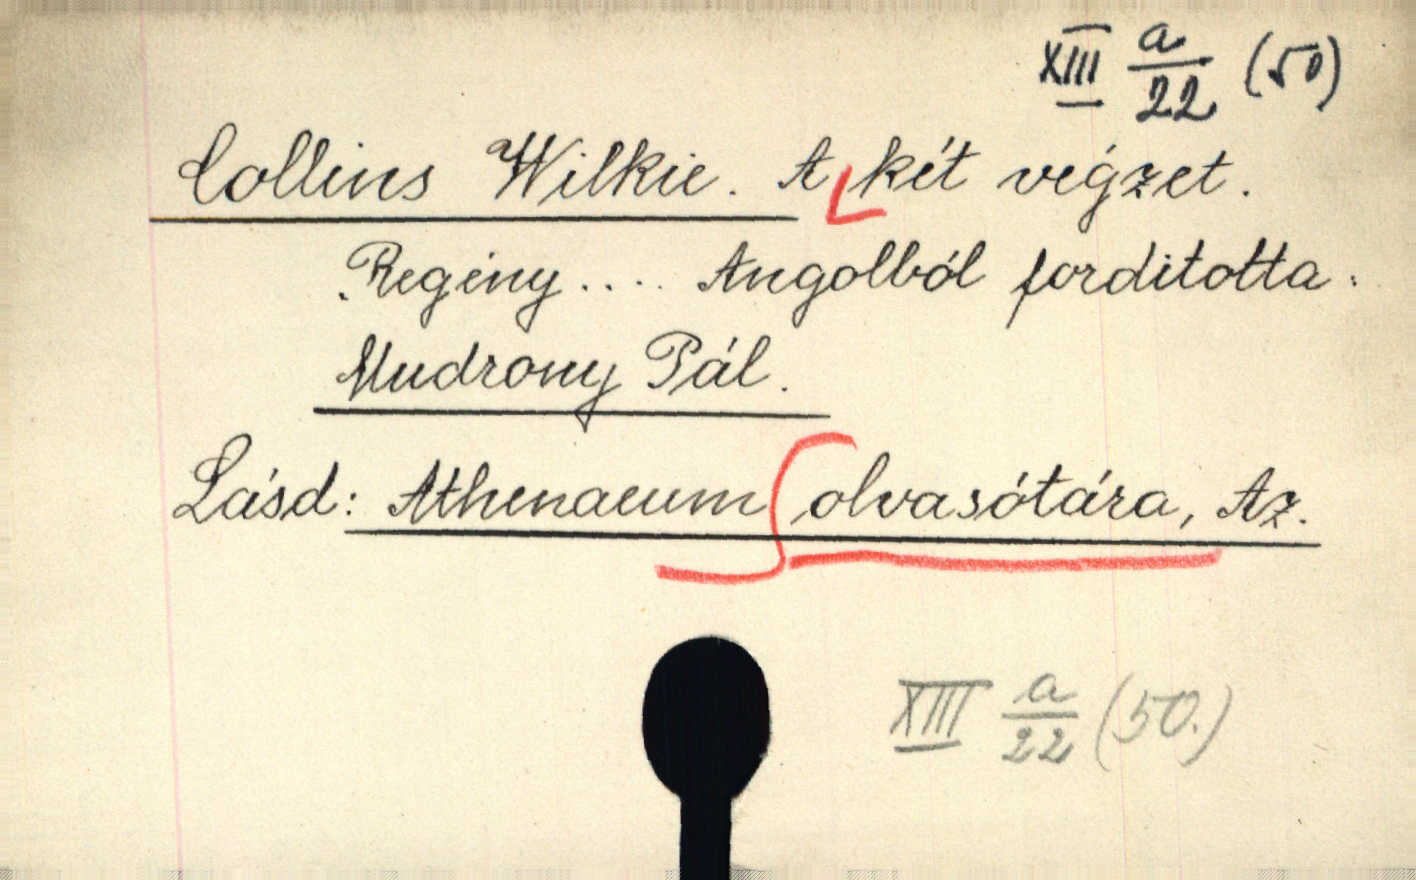 XIII a/22 (50)
Collins Wilkie. A két végzet.
Regény.... Angolból forditotta:
Mudrony Pál.
Lásd: Athenaeum olvasótára, Az.
XIII a/22 (50.)